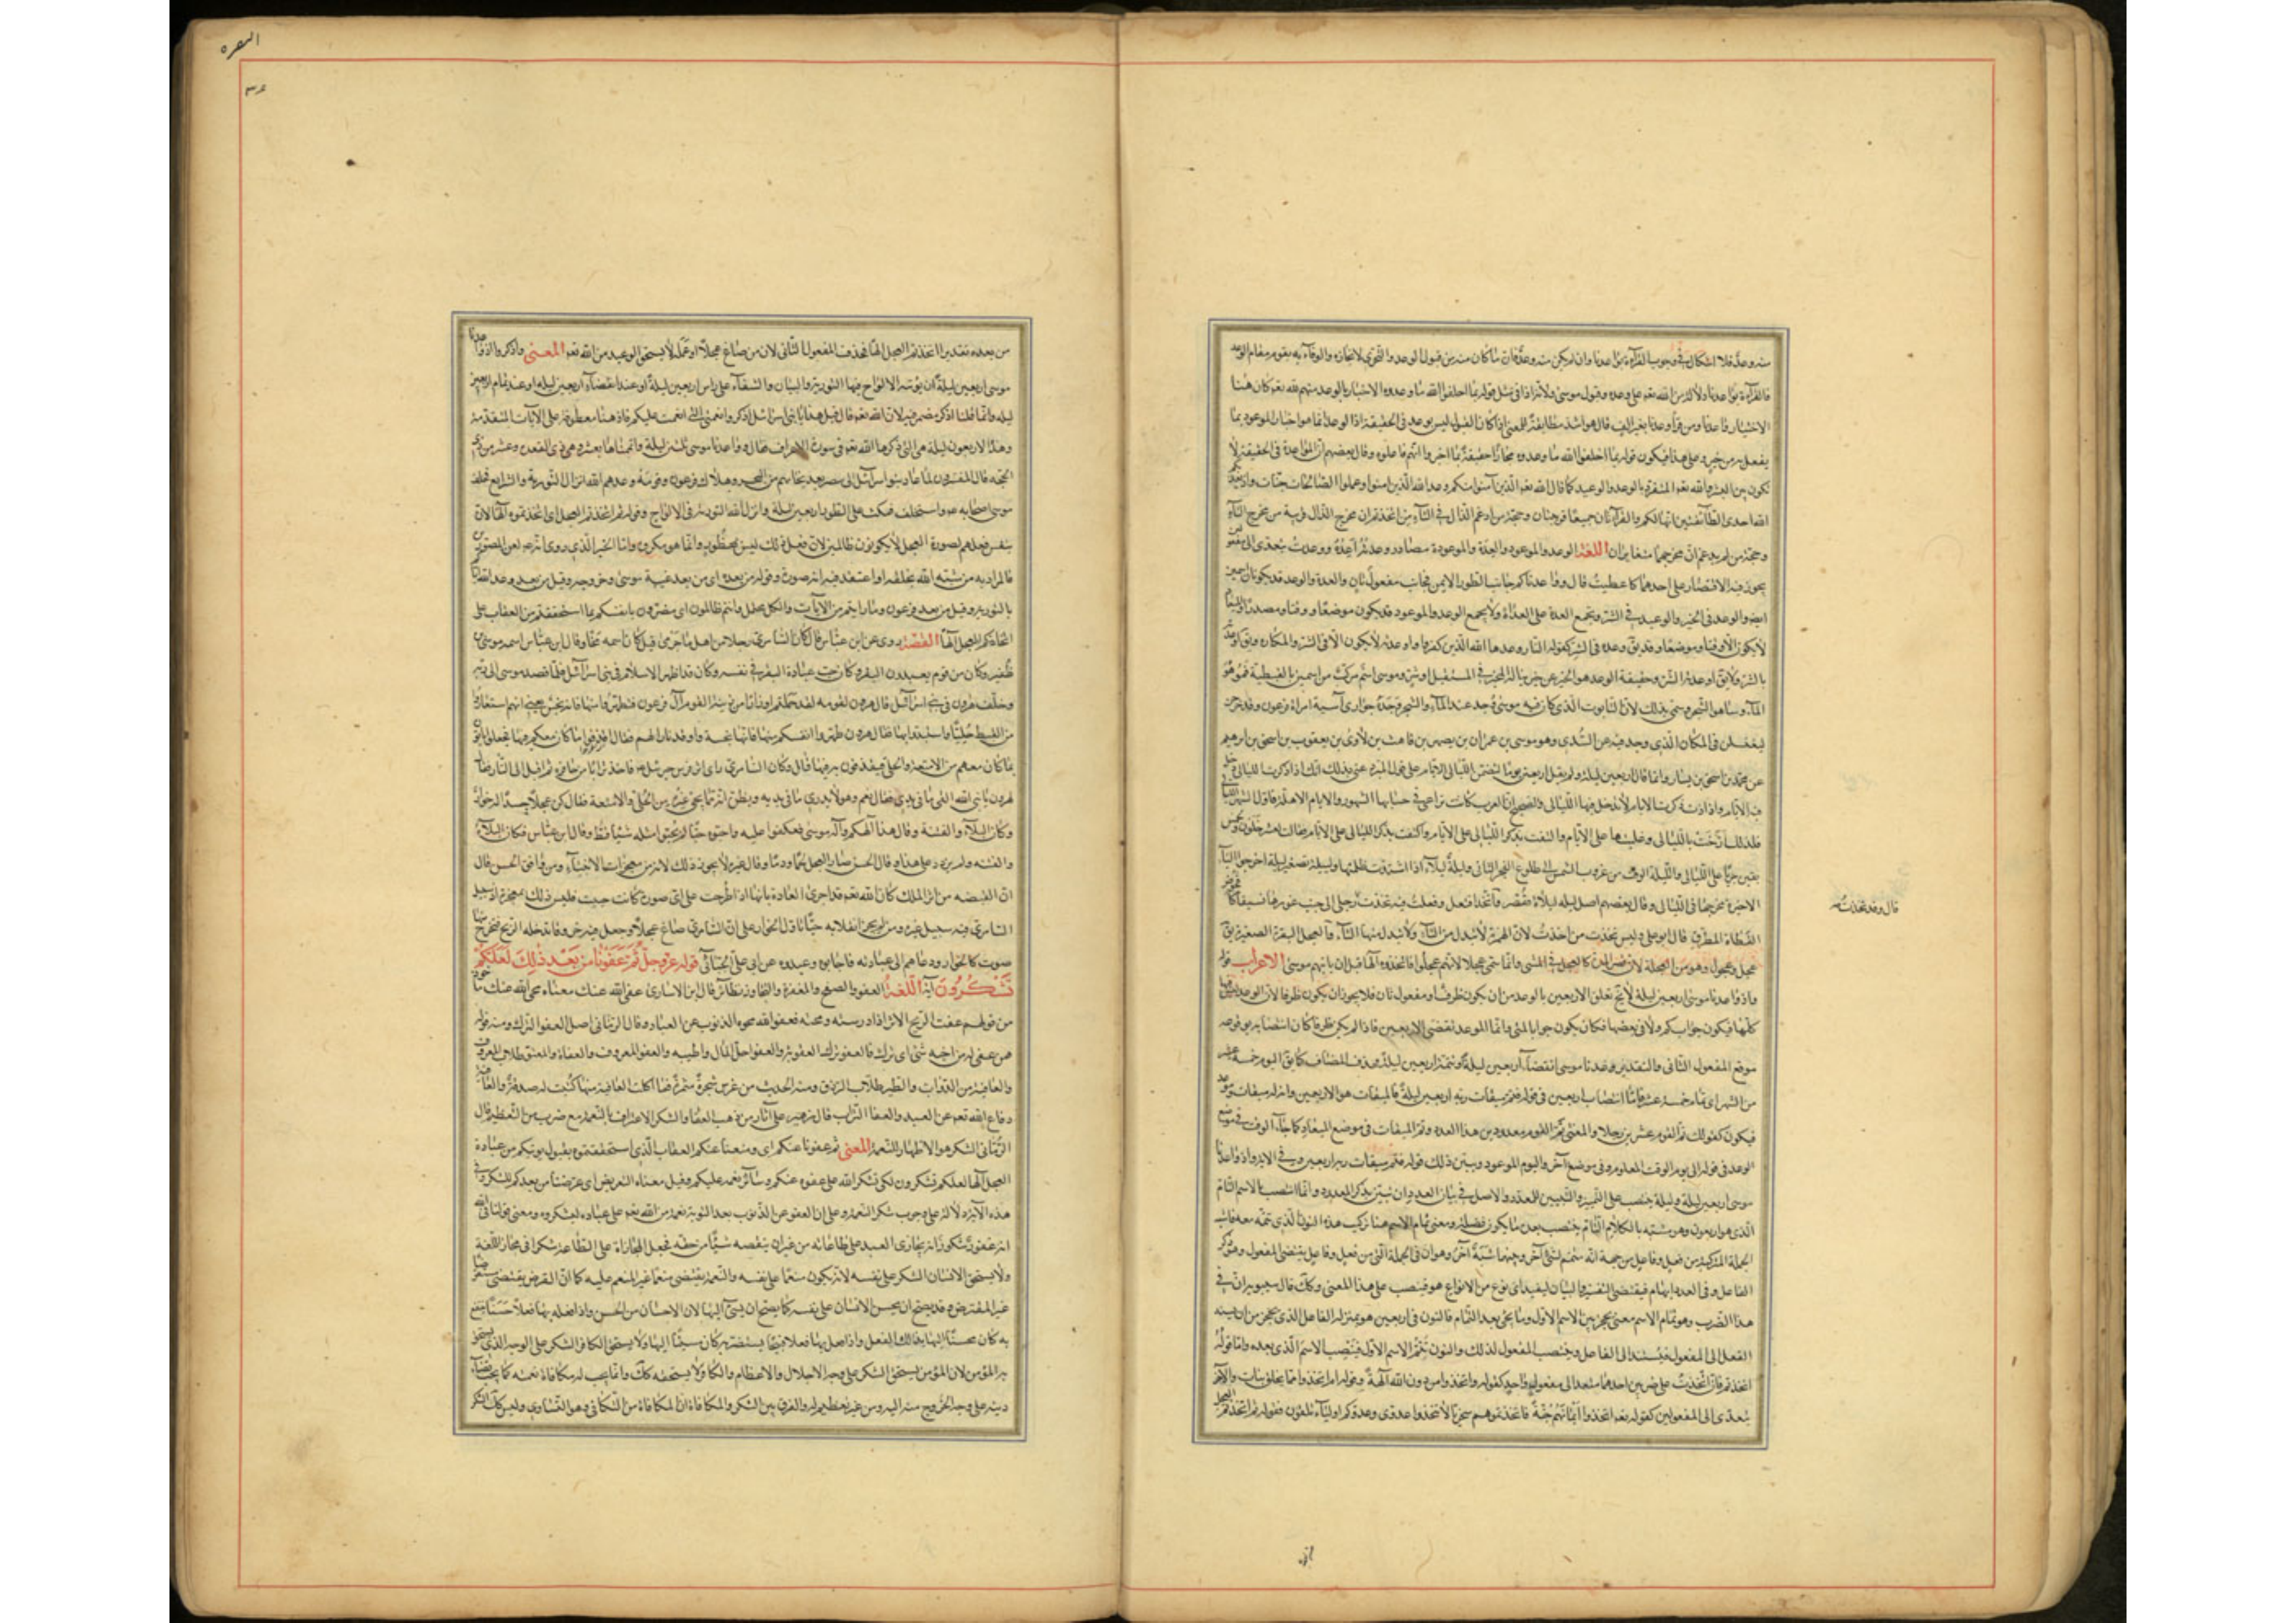 منه وعد فلا اشكال في وجوب القراءة بواعدنا وان لم يكن منه وعد فان ما كان منه من قبول الوعد والتحري لانجازه والوفاء به يقوم مقام الوعد
فالقراءة بواعدنا دلالة من الله تعم على وعده وقبول موسى ولانه اذا في مثل قوله بما اخلفوا الله ما وعدوه الاخبار بالوعد منهم لله تعم كان هنا
الاختيار واعدنا ومن قرأ وعدنا بغير الف قال هو اشد مطابقة للمعنى اذ كان القبول ليس بوعد في الحقيقة اذا الوعد انما هو اخبار الموعود بما
يفعل به من خير وعلى هذا فيكون قوله بما اخلفوا الله ما وعدوه مجازا حقيقة بما اخبروا انهم فاعلوه وقال بعضهم ان المواعدة في الحقيقة لا
تكون بين البشر والله تعم المتفرد بالوعد والوعيد كما قال الله تعم الذين آمنوا منكم وعد الله الذين امنوا وعملوا الصالحات جنات واذ يعدكم
الله احدى الطائفتين انها لكم والقراءتان جميعا قويتان وحجة من ادغم الذال في التاء من اتخذتم ان مخرج الذال قريبة من مخرج التاء
وحجة من لم يدغم ان مخرجهما متغايران اللغة الوعد والموعود والعدة والموعدة مصادر وعدته اعده ووعدت يتعدى الى مفعولين
يجوز فيه الاقتصار على احدهما كاعطيت قال وواعدناكم جانب الطور الايمن فجانب مفعول ثان والعدة والوعد قد يكونان اسمين
ايضا والوعد في الخير والوعيد في الشر ويجمع العدة على العدات ولا يجمع الوعد والموعود قد يكون موضعا ووقتا ومصدرا والميعاد
لا يكون الا وقتا وموضعا وقد يق وعده في الشر كقوله النار وعدها الله الذين كفروا واوعدته لا يكون الا في الشر والمكاره ويق اوعدته
بالشر ولا يق اوعدته الشر وحقيقة الوعد هو الخبر عن خير يناله المخبر في المستقبل او شر وموسى اسم مركب من اسمين بالقبطية فمو هو
الماء وسا هو الشجر وسمي بذلك لان التابوت الذي كان فيه موسى وجد عند الماء والشجر وجده جوارى آسية امراة فرعون وقد خرجن
ليغتسلن في المكان الذي وجد فيه عن السدي وهو موسى بن عمران بن يصهر بن قاهث بن لاوى بن يعقوب بن اسحق بن ابرهيم
عن محمد بن اسحق بن يسار وانما قال اربعين ليلة ولم يقل اربعين يوما لتضمن الليالي الايام على قول المبرد عنى بذلك انك اذا ذكرت الليالي دخل
فيه الايام واذا ذكرت الايام لا يدخل فيها الليالي والصحيح ان العرب كانت تراعي في حسابها الشهور والايام الاهلة فاول الشهر الليالي
فلذلك ارخت بالليالي وغلبتها على الايام والتفت بذكر الليالي على الايام واكتفت بذكر الليالي على الايام فقالت لعشر خلون ولخمس
بقين جريا على الليالي والليلة الوقت من غروب الشمس الى طلوع الفجر الثاني وليلة ليلاء اذا اشتدت ظلمتها ولييلة تصغير ليلة اخرجوا الياء
الاخيرة مخرجها في الليالي وقال بعضهم اصل ليلة ليلاة فقصر واتخذ افتعل وفعلت فيه تخذت رجلي الى جنب غرزها نسيفا كافحوص
القطاة المطرق قال ابو علي وليس تخذت من اخذت لان الهمزة لا تبدل من التاء ولا تبدل منها التاء والعجل البقرة الصغيرة يق
عجل وعجول وهو من العجلة لان قصر المدة كالعجل في الشئ وانما سمى عجلا لانهم عجلوا فاتخذوه الها قبل ان ياتيهم موسى الاعراب قوله
واذ واعدنا موسى اربعين ليلة لا يخ تعلق الاربعين بالوعد من ان يكون ظرفا او مفعول ثان فلا يجوز ان يكون ظرفا لان الوعد ليس فيها
كلها فيكون جواب كم ولا في بعضها فكان يكون جوابا لمتى وانما الموعد تقضى الاربعين فاذا لم يكن ظرفا كان انتصابه بوقوعه
موقع المفعول الثاني والتقدير وعدنا موسى انقضاء اربعين ليلة وتتمة اربعين ليلة فحذف المضاف كما يق اليوم خمسة عشر
من الشهر اى تمام خمسة عشر فاما انتصاب اربعين في قوله فتم ميقات ربه اربعين ليلة فالميقات هو الاربعين وانه ميقات وموعد
فيكون كقولك تم القوم عشرين رجلا والمعنى تم القوم معدودين هذا العدد وتم الميقات في موضع الميعاد كما جاء الوقت في موضع
الوعد في قوله الى يوم الوقت المعلوم وفي موضع آخر واليوم الموعود ويبين ذلك قوله فتم ميقات ربه اربعين وفي الاية واذ واعدنا
موسى اربعين ليلة وليلة ينتصب على التمييز والتبيين للعدد والاصل في بيان العدد ان يبين بذكر المعدود وانما انتصب بالاسم التام
الذي هو اربعون وهو مشبه بالكلام التام ينتصب بعده ما يكون فضلة ومعنى تمام الاسم هنا تركيب هذه النون الذي تمه معه فاشبه
الجملة المركبة من فعل وفاعل من جهة انه متمم لشئ آخر وجيهما شبه آخر وهو ان في الجملة التي من فعل وفاعل يقتضى المفعول وهو ذكر
الفاعل وفي العدد ابهام فيقتضى التفسير والبيان ليفيد اى نوع من الانواع هو فينصب على هذا المعنى وكك قال سيبويه ان في
هذا الضرب وهو تمام الاسم معنى يحجز بين الاسم الاول وما يجئ بعد التمام فالنون في اربعين هو بمنزلة الفاعل الذي يحجز من ان يسند
الفعل الى المفعول فيسند الى الفاعل وينتصب المفعول لذلك والنون تتم الاسم الاول فينتصب الاسم الذي بعده واما قوله
اتخذتم فان اتخذت على ضربين احدهما متعد الى مفعول واحد كقوله واتخذوا من دون الله آلهة وقوله ام اتخذوا مما يخلق بنات والآخر
يتعدى الى المفعولين كقوله تعم اتخذوا ايمانهم جنة فاتخذتموهم سخريا لا تتخذوا عدوى وعدوكم اولياء تلقون فقوله ثم اتخذتم العجل
قال وقد تخذت
البقره
٣٤
من بعده تقديره اتخذتم العجل الها فحذف المفعول الثاني لان من صاغ عجلا او عمله لا يستحق الوعيد من الله تعم المعنى واذكروا اذ واعدنا
موسى اربعين ليلة ان نؤتيه الالواح فيها التورية والبيان والشفاء على راس اربعين ليلة او عند انقضاء اربعين ليلة او عند تمام اربعين
ليلة وانما قلنا اذكر مضمر فيه لان الله تعم قال قبل هذا يا بني اسرائيل اذكروا نعمتي التي انعمت عليكم فاذ هنا معطوفة على الآيات المتقدمة
وهذه الاربعون ليلة هي التي ذكرها الله تعم في سورة الاعراف فقال وواعدنا موسى ثلثين ليلة واتممناها بعشر وهي ذي القعدة وعشر من ذي
الحجة قال المفسرون لما عاد بنو اسرائيل الى مصر بعد انجائهم من البحر وهلاك فرعون وقومه وعدهم الله انزال التورية والشرايع فخلف
موسى اصحابه واستخلف فمكث على الطور اربعين ليلة وانزل الله التورية في الالواح وقوله ثم اتخذتم العجل اى اتخذتموه الها لان
بنفس فعلهم لصورة العجل لا يكونون ظالمين لان فعل ذلك ليس بمحظور وانما هو مكروه واما الخبر الذي روى انه لعن المصورين
فالمراد به من شبه الله بخلقه او اعتقد فيه انه صورة وقوله من بعده اى من بعد غيبة موسى وخروجه وقيل من بعد وعد الله اياكم
بالتورية وقيل من بعد فرعون وما رايتم من الآيات والكل محتمل وانتم ظالمون اى مضرون بانفسكم بما استحققتم من العقاب على
اتخاذكم العجل الها القصة روى عن ابن عباس قال كان السامرى رجلا من اهل باجرمى قيل كان اسمه ميخا وقال ابن عباس اسمه موسى بن
ظفر وكان من قوم يعبدون البقر وكان حب عبادة البقر في نفسه وكان قد اظهر الاسلام في بني اسرائيل فلما قصد موسى الى ربه
وخلف هرون في بني اسرائيل قال هرون لقومه لقد حملتم اوزارا من زينة القوم آل فرعون فتطهروا منها فانه نجس يعني انهم استعاروا
من القبط حليا واستبدوا بها فقال هرون طهروا انفسكم منها فانها نجسة واوقد نارا لهم فقال اقذفوا ما كان معكم فيها فجعلوا ياتون
بما كان معهم من الامتعة والحلى فيقذفون به فيها قال وكان السامرى راى اثر فرس جبرئيل فاخذ ترابا من حافره ثم اقبل الى النار فقال
لهرون يا نبي الله القي ما في يدى فقال نعم وهو لا يدرى ما في يديه ويظن انه مما يجئ غيره من الحلى والامتعة فقال كن عجلا جسدا له خوار
وكان البلاء والفتنة وقال هذا الهكم واله موسى فعكفوا عليه واحبوه حبا لم يحبوا مثله شيئا قط وقال ابن عباس فكان البلاء
والفتنة ولم يزد على هذا وقال الحسن صار العجل لحما ودما وقال غيره لا يجوز ذلك لانه من معجزات الانبياء ومن وافق الحسن قال
ان القبضة من اثر الملك كان الله تعم قد اجرى العادة بانها اذا طرحت على اى صورة كانت حييت فليس ذلك بمعجزة اذ سبيل
السامرى فيه سبيل غيره ومن لم يجز انقلابه حيا تاول الخوار على ان السامرى صاغ عجلا وجعل فيه خروقا تدخله الريح فيخرج منها
صوت كالخوار ودعاهم الى عبادته فاجابوه وعبدوه عن ابي على الجبائي قوله عز وجل ثم عفونا عنكم من بعد ذلك لعلكم
تشكرون آية اللغة العفو والصفح والمغفرة والتجاوز نظائر قال ابن الانبارى عفى الله عنك معناه محى الله عنك ماخوذ
من قولهم عفت الريح الاثر اذا درسته ومحته فعفو الله محوه الذنوب عن العباد وقال الرماني اصل العفو الترك ومنه قوله
فمن عفى له من اخيه شئ اى ترك فالعفو ترك العقوبة والعفو احل المال واطيبه والعفو المعروف والعفاة والمعتق طلاب المعروف
والعافية من الدواب والطير طلاب الرزق ومنه الحديث من غرس شجرة مثمرة فما اكلت العافية منها كتبت له صدقة والعافية
دفاع الله تعم عن العبد والعفا التراب قال زهير على آثار من ذهب العفاء والشكر الاعتراف بالنعمة مع ضرب من التعظيم قال
الرماني الشكر هو الاظهار للنعمة المعنى ثم عفونا عنكم اى وضعنا عنكم العقاب الذي استحققتموه بقبول توبتكم من عبادة
العجل الها لعلكم تشكرون لكى تشكر الله على عفوه عنكم وسائر نعمه عليكم وقيل معناه التعريض اى عرضناكم من بعدكم للشكر وفي
هذه الآية دلالة على وجوب شكر النعمة وعلى ان العفو عن الذنوب بعد التوبة نعمة من الله تعم على عباده ليشكروه ومعنى قولنا في الله
انه غفور شكور انه يجازى العبد على طاعاته من غير ان ينقصه شيئا من حقه فجعل المجازاة على الطاعة شكرا في مجاز اللغة
ولا يستحق الانسان الشكر على نفسه لانه لا يكون منعما على نفسه والنعمة يقتضى منعما غير المنعم عليه كما ان القرض يقتضى مستقرضا
غير المقترض وقد يصح ان يحسن الانسان على نفسه كما يصح ان يسئ اليها لان الاحسان من الحسن واذا فعل بها فعلا حسنا ينتفع
به كان محسنا اليها بذلك الفعل واذا فعل بها فعلا قبيحا يستضر به كان مسيئا اليها ولا يستحق الكافر الشكر على الوجه الذي يستحق
به المؤمن لان المؤمن يستحق الشكر على وجه الاجلال والاعظام والكافر لا يستحقه كك وانما يجب له مكافاة نعمته كما يجب قضاء
دينه على وجه الخروج منه اليه من غير تعظيم له والفرق بين الشكر والمكافاة ان المكافاة من التكافى وهو التساوى وليس كك الشكر